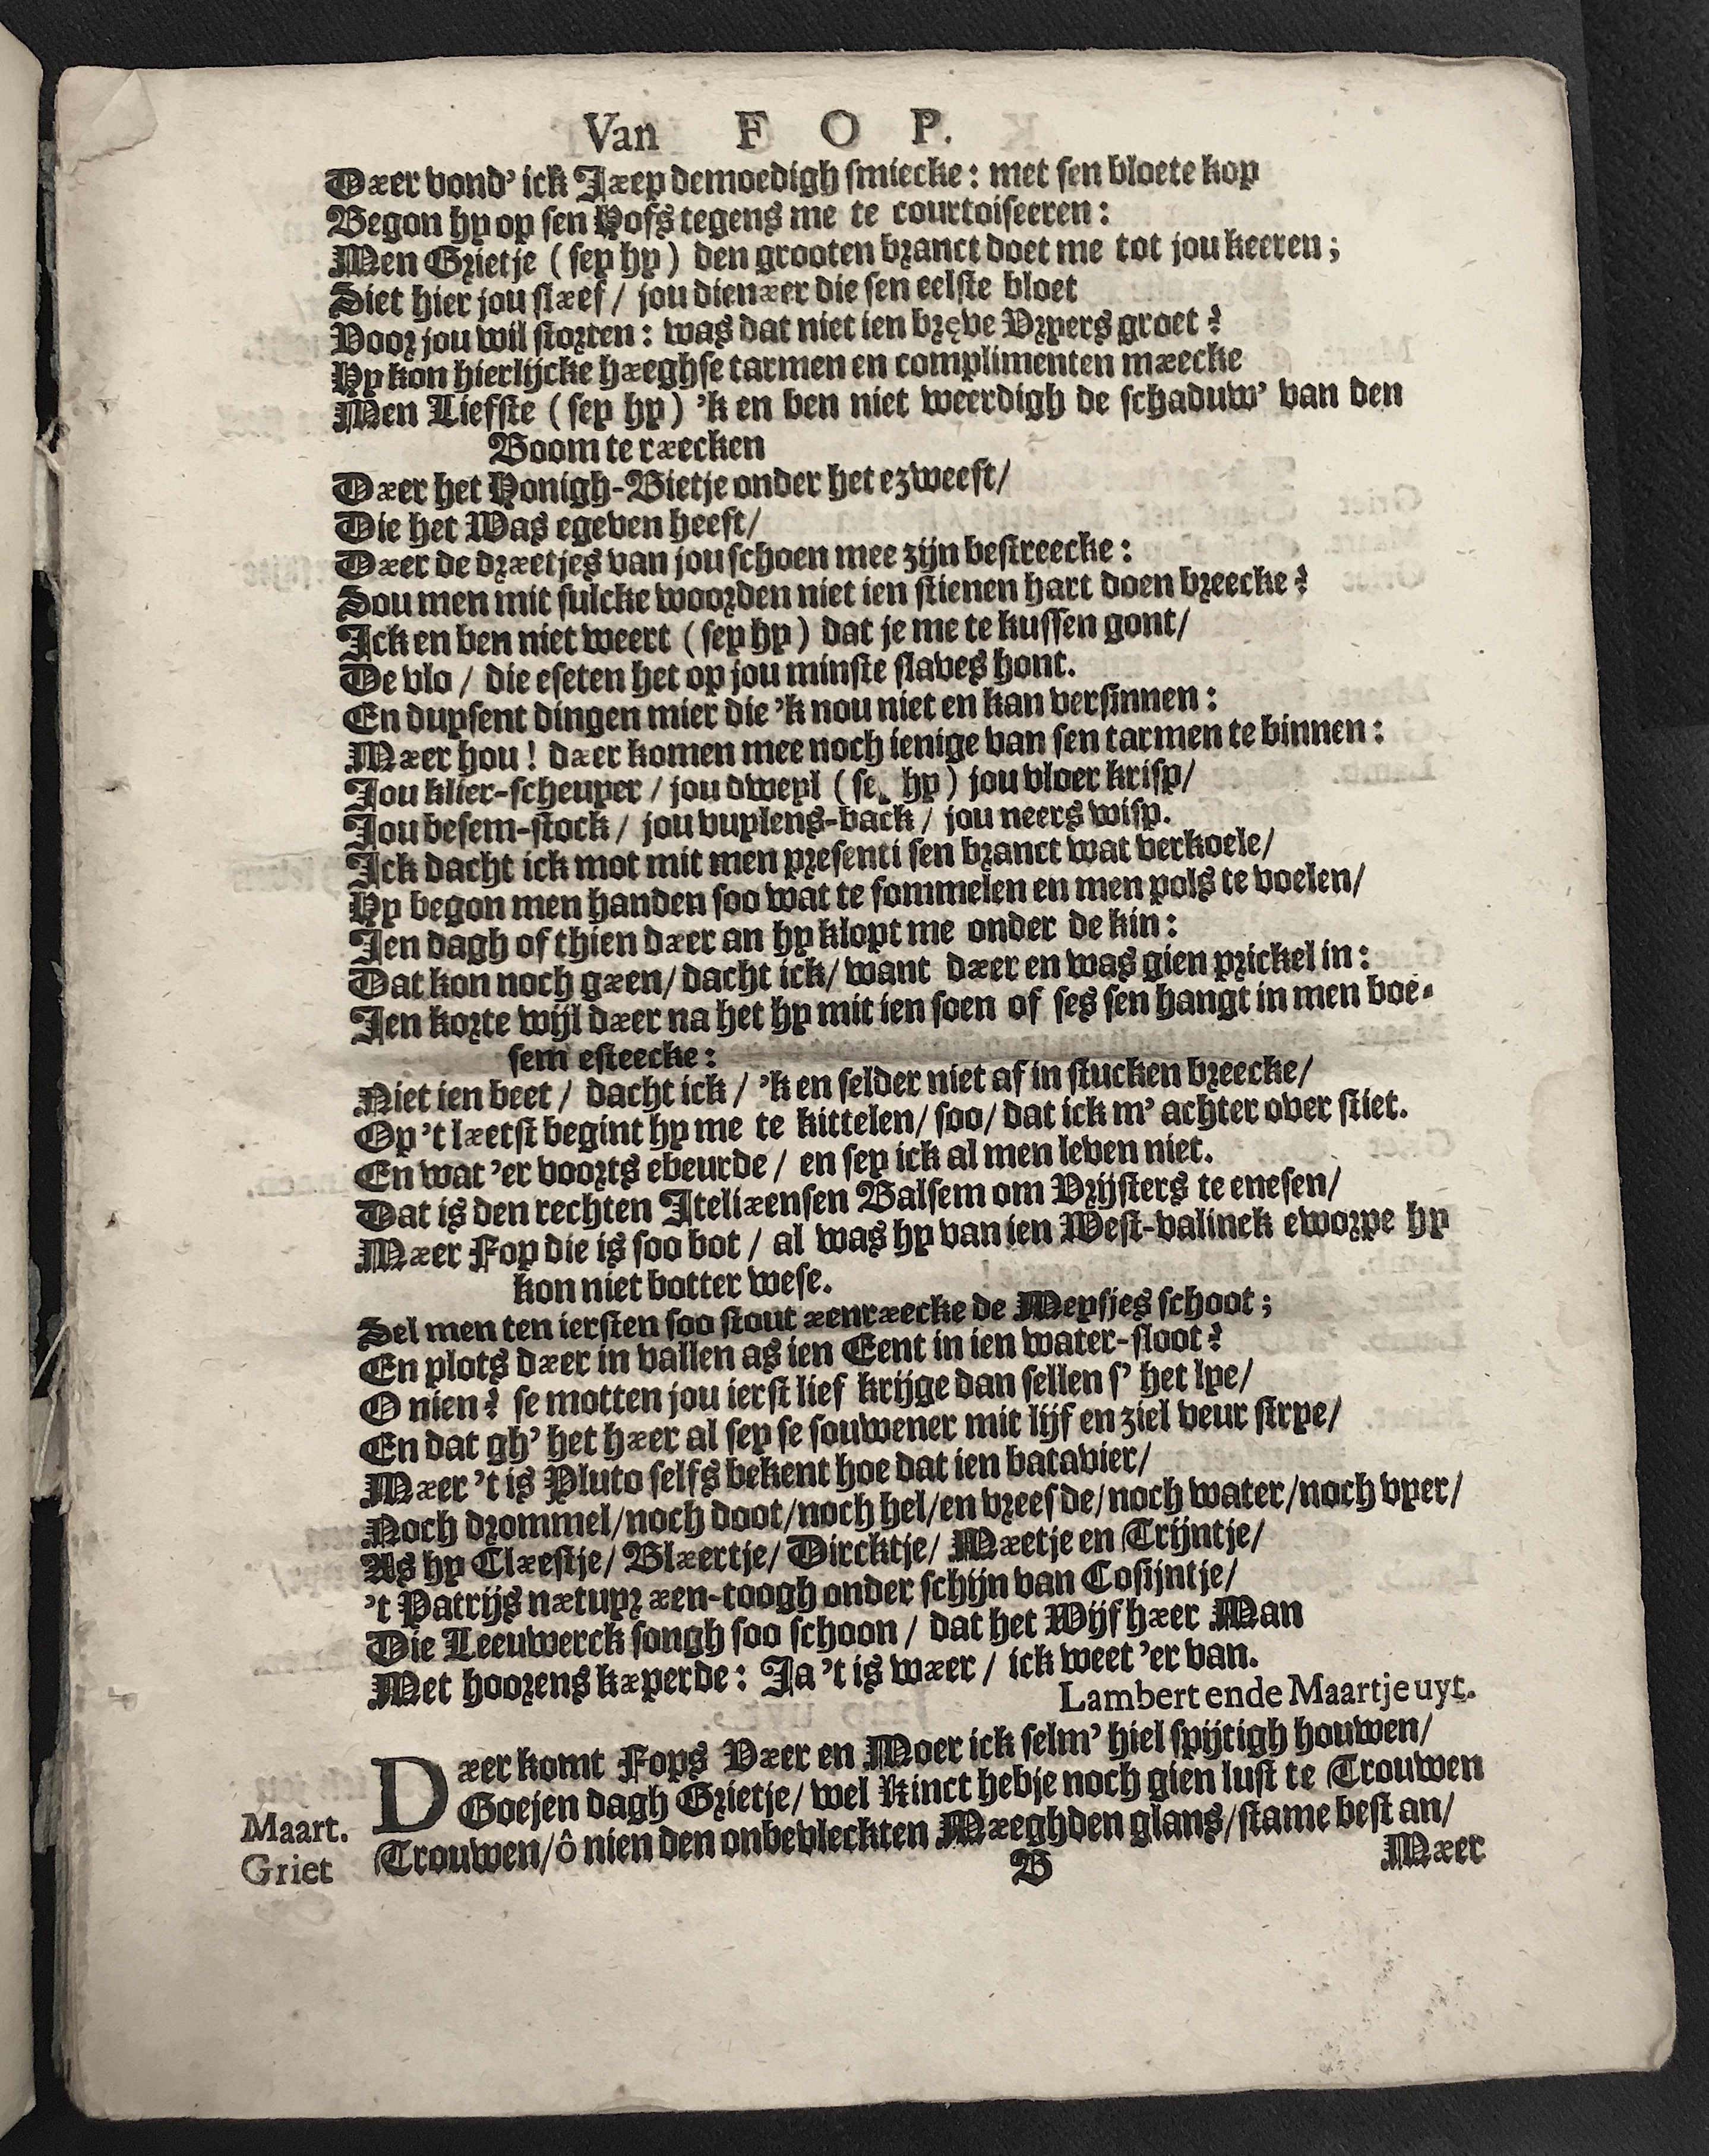 Van F O P.
Dæer vond' ick Jæep demoedigh smiecke: met sen bloete kop
Begon hy op sen Hofs tegens me te courtoiseeren:
Men Grietje (sey hy) den grooten branct doet me tot jou keeren;
Siet hier jou slæef / jou dienæer die sen eelste bloet
Voor jou wil storten: was dat niet ien bręve Vryers groet?
Hy kon hierlijcke hæeghse tarmen en complimenten mæecke
Men Liefste (sey hy) 'k en ben niet weerdigh de schaduw' van den
Boom te ræecken
Dæer het Honigh-Bietje onder het ezweeft/
Die het Was egeven heeft/
Dæer de dræetjes van jou schoen mee zijn bestreecke:
Sou men mit sulcke woorden niet ien stienen hart doen breecke?
Ick en ben niet weert (sey hy) dat je me te kussen gont/
De vlo / die eseten het op jou minste slaves hont.
En duysent dingen mier die 'k nou niet en kan versinnen:
Mæer hou! dæer komen mee noch ienige van sen tarmen te binnen:
Jou klier-scheuyer / jou dweyl (se hy) jou vloer krisp/
Jou besem-stock / jou vuylens-back / jou neers wisp.
Ick dacht ick mot mit men presenti sen branct wat verkoele/
Hy begon men handen soo wat te fommelen en men pols te voelen/
Ien dagh of thien dæer an hy klopt me onder de kin:
Dat kon noch gæen/ dacht ick/ want dæer en was gien prickel in:
Ien korte wijl dæer na het hy mit ien soen of ses sen hangt in men boe-
sem esteecke:
Niet ien beet / dacht ick / 'k en selder niet af in stucken breecke/
Op 't læetst begint hy me te kittelen/ soo/ dat ick m' achter over stiet.
En wat 'er voorts ebeurde / en sey ick al men leven niet.
Dat is den rechten Iteliæensen Balsem om Vrijsters te enesen/
Mæer Fop die is soo bot / al was hy van ien West-valinck eworpe hy
kon niet botter wese.
Sel men ten iersten soo stout æenræecke de Meysjes schoot;
En plots dæer in vallen as ien Eent in ien water-sloot?
O nien? se motten jou ierst lief krijge dan sellen s' het lye/
En dat gh' het hæer al sey se souwener mit lijf en ziel veur strye/
Mæer 't is Pluto selfs bekent hoe dat ien batavier/
Noch drommel/noch doot/noch hel/en vreesde/noch water/noch vyer/
As hy Clæestje/ Blæertje/ Dircktje/ Mæetje en Trijntje/
't Patrijs nætuyr æen-toogh onder schijn van Cosijntje/
Die Leeuwerck songh soo schoon / dat het Wijf hæer Man
Met hoorens kæperde: Ja 't is wæer / ick weet 'er van.
Lambert ende Maartje uyt.
Dæer komt Fops Væer en Moer ick selm' hiel spijtigh houwen/
Maart. Goejen dagh Grietje/ wel Kinct hebje noch gien lust te Trouwen
Griet Trouwen/ô nien den onbevleckten Mæeghden glans/stame best an/
B Mæer